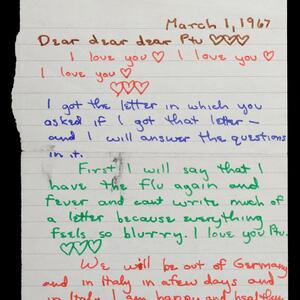 March 1, 1967
Dear dear dear Ptu ♡♡♡
I love you ♡ I love you ♡
I love you ♡
♡♡♡
I got the letter in which you
asked if I got that letter —
and I will answer the questions
in it.
First I will say that I
have the flu again and
fever and cant write much of
a letter because everything
feels so blurry. I love you Ptu.
♡♡♡
We will be out of Germany
and in Italy in a few days and
in Italy I am happy and healthy